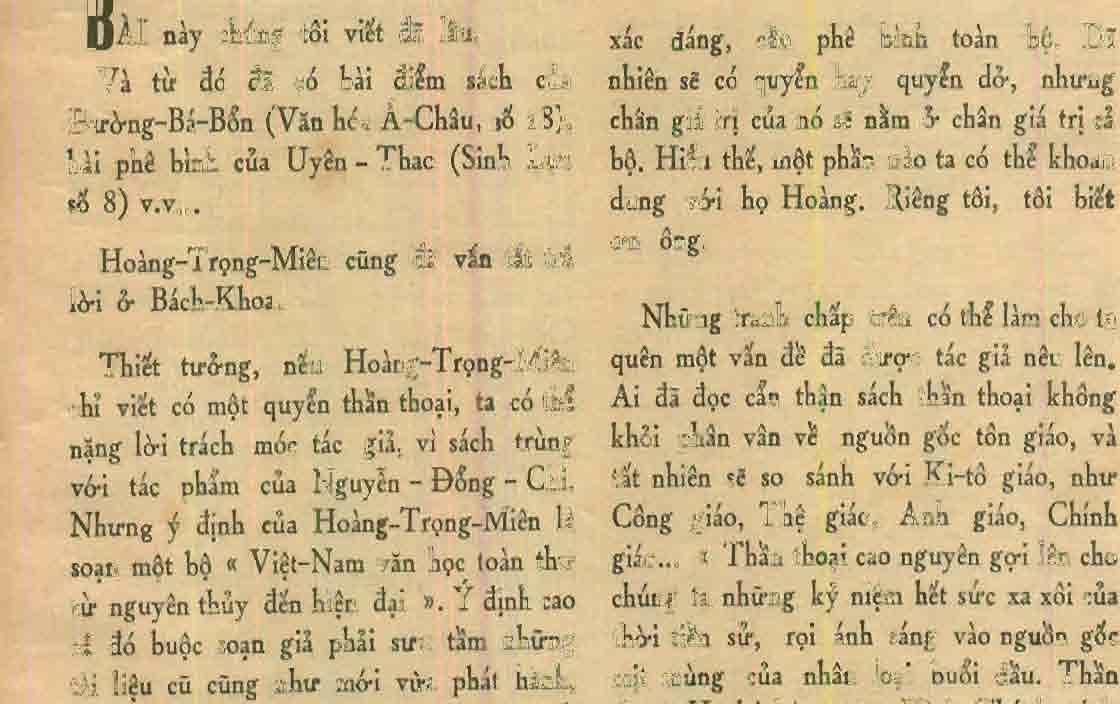 BÀI này chúng tôi viết đã lâu.
Và từ đó đã có bài điểm sách của
Đường-Bá-Bổn (Văn hóa Á-Châu, số 18),
bài phê bình của Uyên - Thao (Sinh Lực
số 8) v.v...
Hoàng-Trọng-Miên cũng đã vắn tắt trả
lời ở Bách-Khoa.
Thiết tưởng, nếu Hoàng-Trọng-Miên
chỉ viết có một quyển thần thoại, ta có thể
nặng lời trách móc tác giả, vì sách trùng
với tác phẩm của Nguyễn - Đổng - Chi.
Nhưng ý định của Hoàng-Trọng-Miên là
soạn một bộ « Việt-Nam văn học toàn thư
từ nguyên thủy đến hiện đại ». Ý định cao
cả đó buộc soạn giả phải sưu tầm những
tài liệu cũ cũng như mới vừa phát hành,
xác đáng, cần phê bình toàn bộ. Dĩ
nhiên sẽ có quyển hay quyển dở, nhưng
chân giá trị của nó sẽ nằm ở chân giá trị cả
bộ. Hiểu thế, một phần nào ta có thể khoan
dung với họ Hoàng. Riêng tôi, tôi biết
ơn ông.
Những tranh chấp trên có thể làm cho ta
quên một vấn đề đã được tác giả nêu lên.
Ai đã đọc cẩn thận sách thần thoại không
khỏi phân vân về nguồn gốc tôn giáo, và
tất nhiên sẽ so sánh với Ki-tô giáo, như
Công giáo, Thệ giáo, Anh giáo, Chính
giáo... « Thần thoại cao nguyên gợi lên cho
chúng ta những kỷ niệm hết sức xa xôi của
thời tiền sử, rọi ánh sáng vào nguồn gốc
mịt mùng của nhân loại buổi đầu. Thần